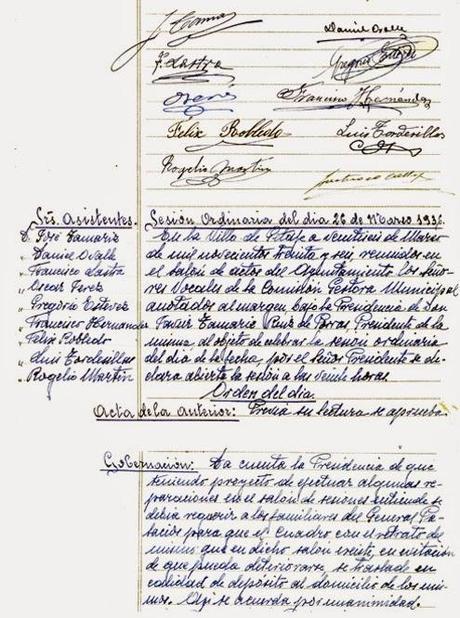 Daniel Ovalle
F. Lastra
Gregorio Estévez
Francisco Hernández
Félix Robledo
Luis Tordesillas
Rogelio Martín
Srs. Asistentes.
D. José Tamariz
" Daniel Ovalle
" Francisco Lastra
" Oscar Perez
" Gregorio Estevez
" Francisco Hernandez
" Felix Robledo
" Luis Tordesillas
" Rogelio Martín
Sesión Ordinaria del dia 26 de Marzo 1936.
En la Villa de Getafe a veintiseis de Marzo
de mil novecientos treinta y seis, reunidos en
el salón de actos del Ayuntamiento los seño-
res Vocales de la Comisión Gestora Municipal
anotados al margen, bajo la Presidencia de Don
Tamariz Ruiz de Porras, Presidente de la
misma, al objeto de celebrar la sesión ordinaria
del dia de la fecha, por el señor Presidente se de-
clara abierta la sesión a las veinte horas.
Orden del dia.
Acta de la anterior: Previa su lectura se aprueba.
Gobernación: Da cuenta la Presidencia de que
teniendo proyecto de efectuar algunas re-
paraciones en el salón de sesiones entiende se
debia requerir a los familiares del General Pa-
lacios para que el cuadro con el retrato del
mismo que en dicho salón existe, en evitación
de que pueda deteriorarse se traslade en
calidad de depósito al domicilio de los mis-
mos. Asi se acuerda por unanimidad.